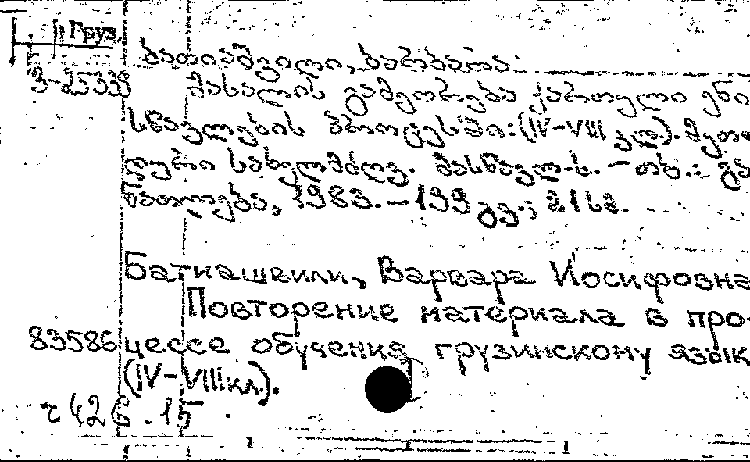 Груз.
ბათიაშვილი, ბარბარა.
3-25339 მასალის გამეორება ქართული ენი
სწავლების პროცესში: (IV-VIII კლ.). მეთო
დური სახელმძღვ. მასწავლ.ს. - თბ.: გა
ნათლება, 1983. - 199 გვ.; 21სმ.
Батиашвили, Варвара Иосифовна
Повторение материала в про-
83586 цессе обучения грузинскому язык
(IV-VIII кл.).